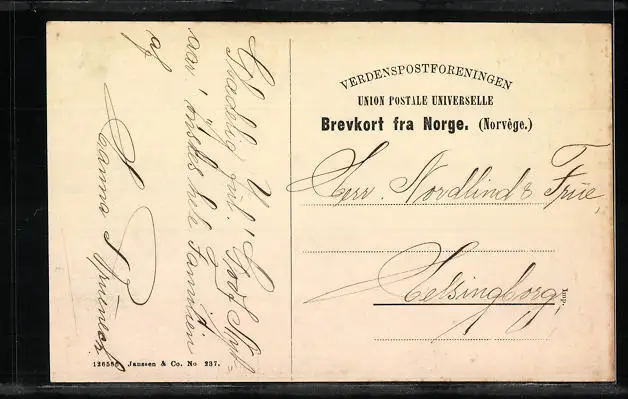 VERDENSPOSTFORENINGEN
UNION POSTALE UNIVERSELLE
Brevkort fra Norge. (Norvège.)
Herr. Nordlind & Frue,
Helsingborg,
Imp.
Glædelig jul! Godt Nyt-
aar! ønskes hele Familien
af
Hanna
Janssen & Co. No 237.